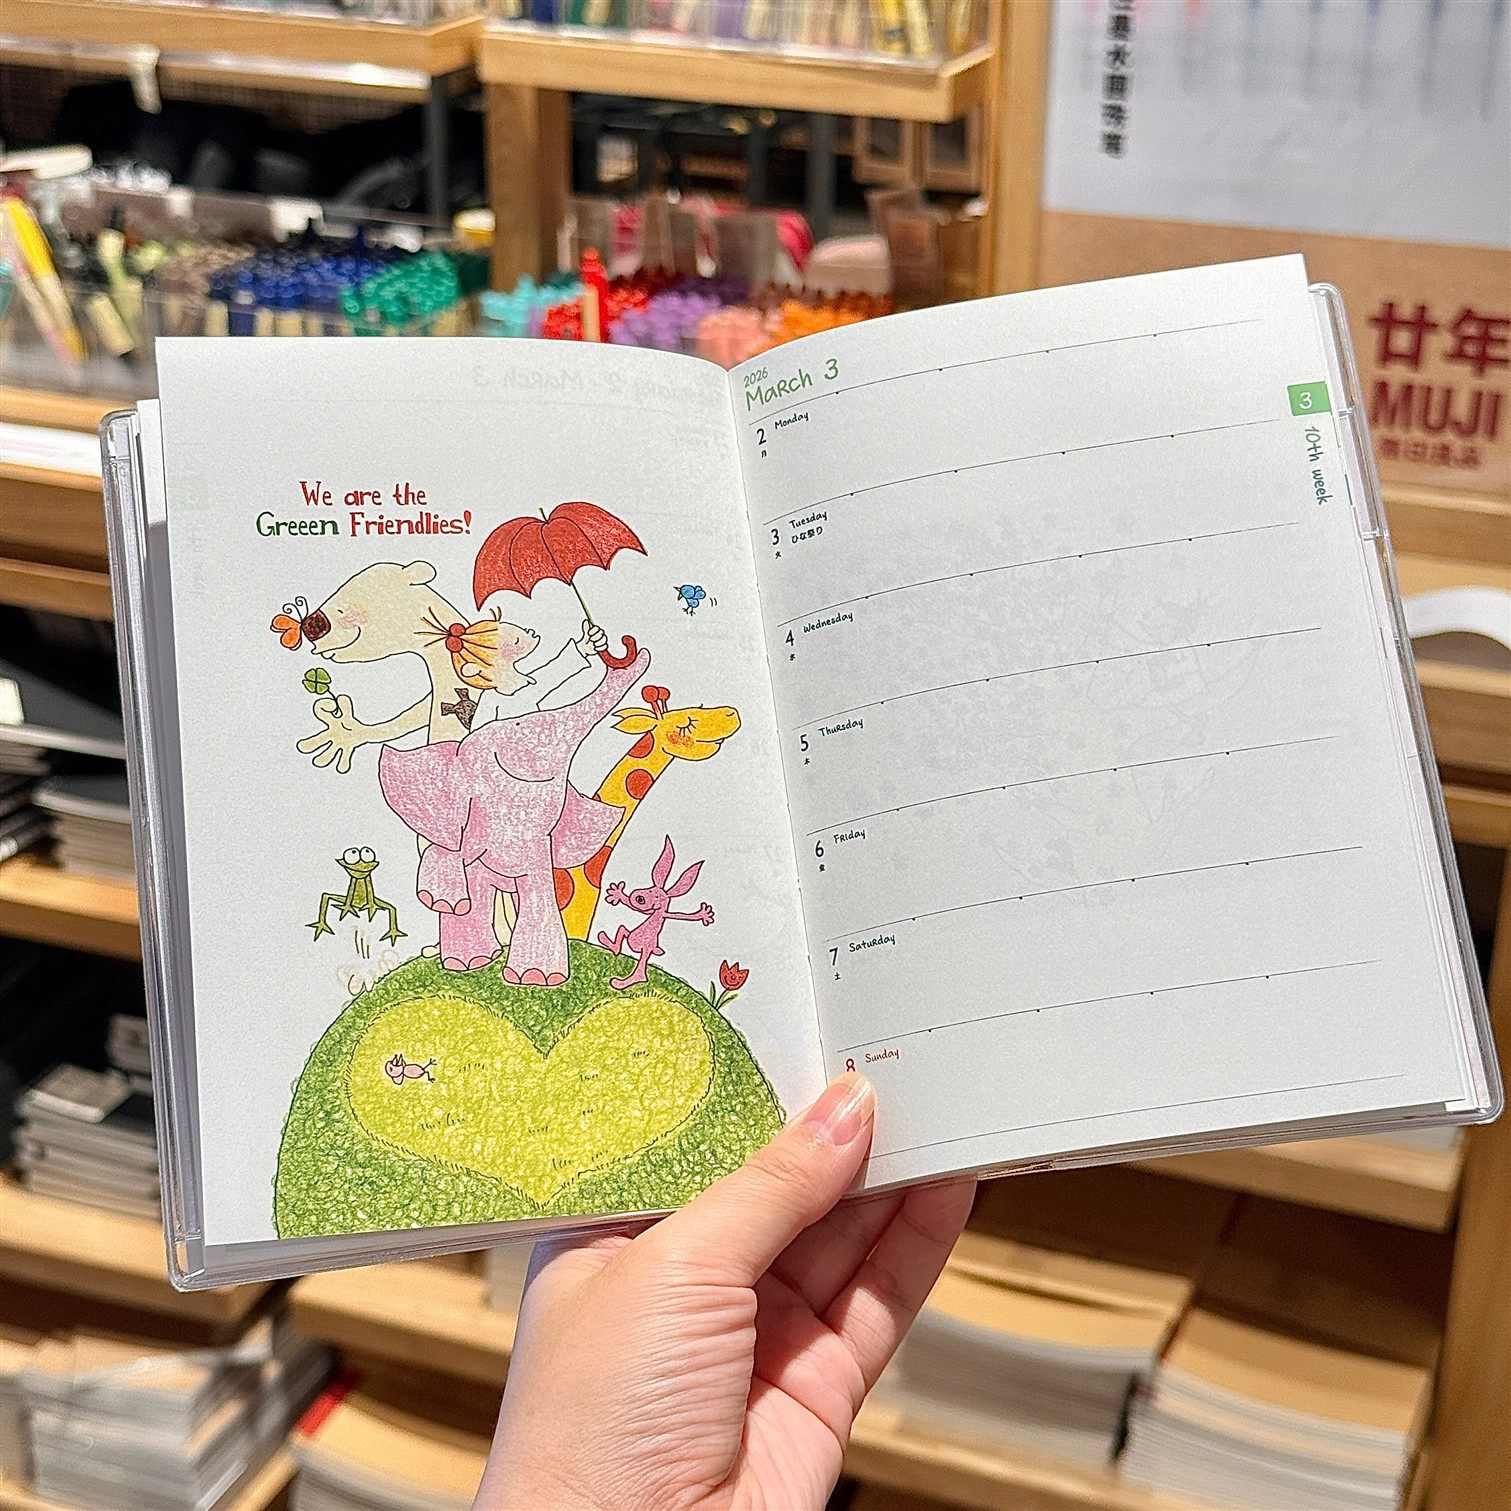 We are the
Greeen Friendlies!
2026
March 3
2 Monday
月
3 Tuesday
火 ひな祭り
4 Wednesday
水
5 Thursday
木
6 Friday
金
7 Saturday
土
8 Sunday
3
10th week
廿年
MUJI